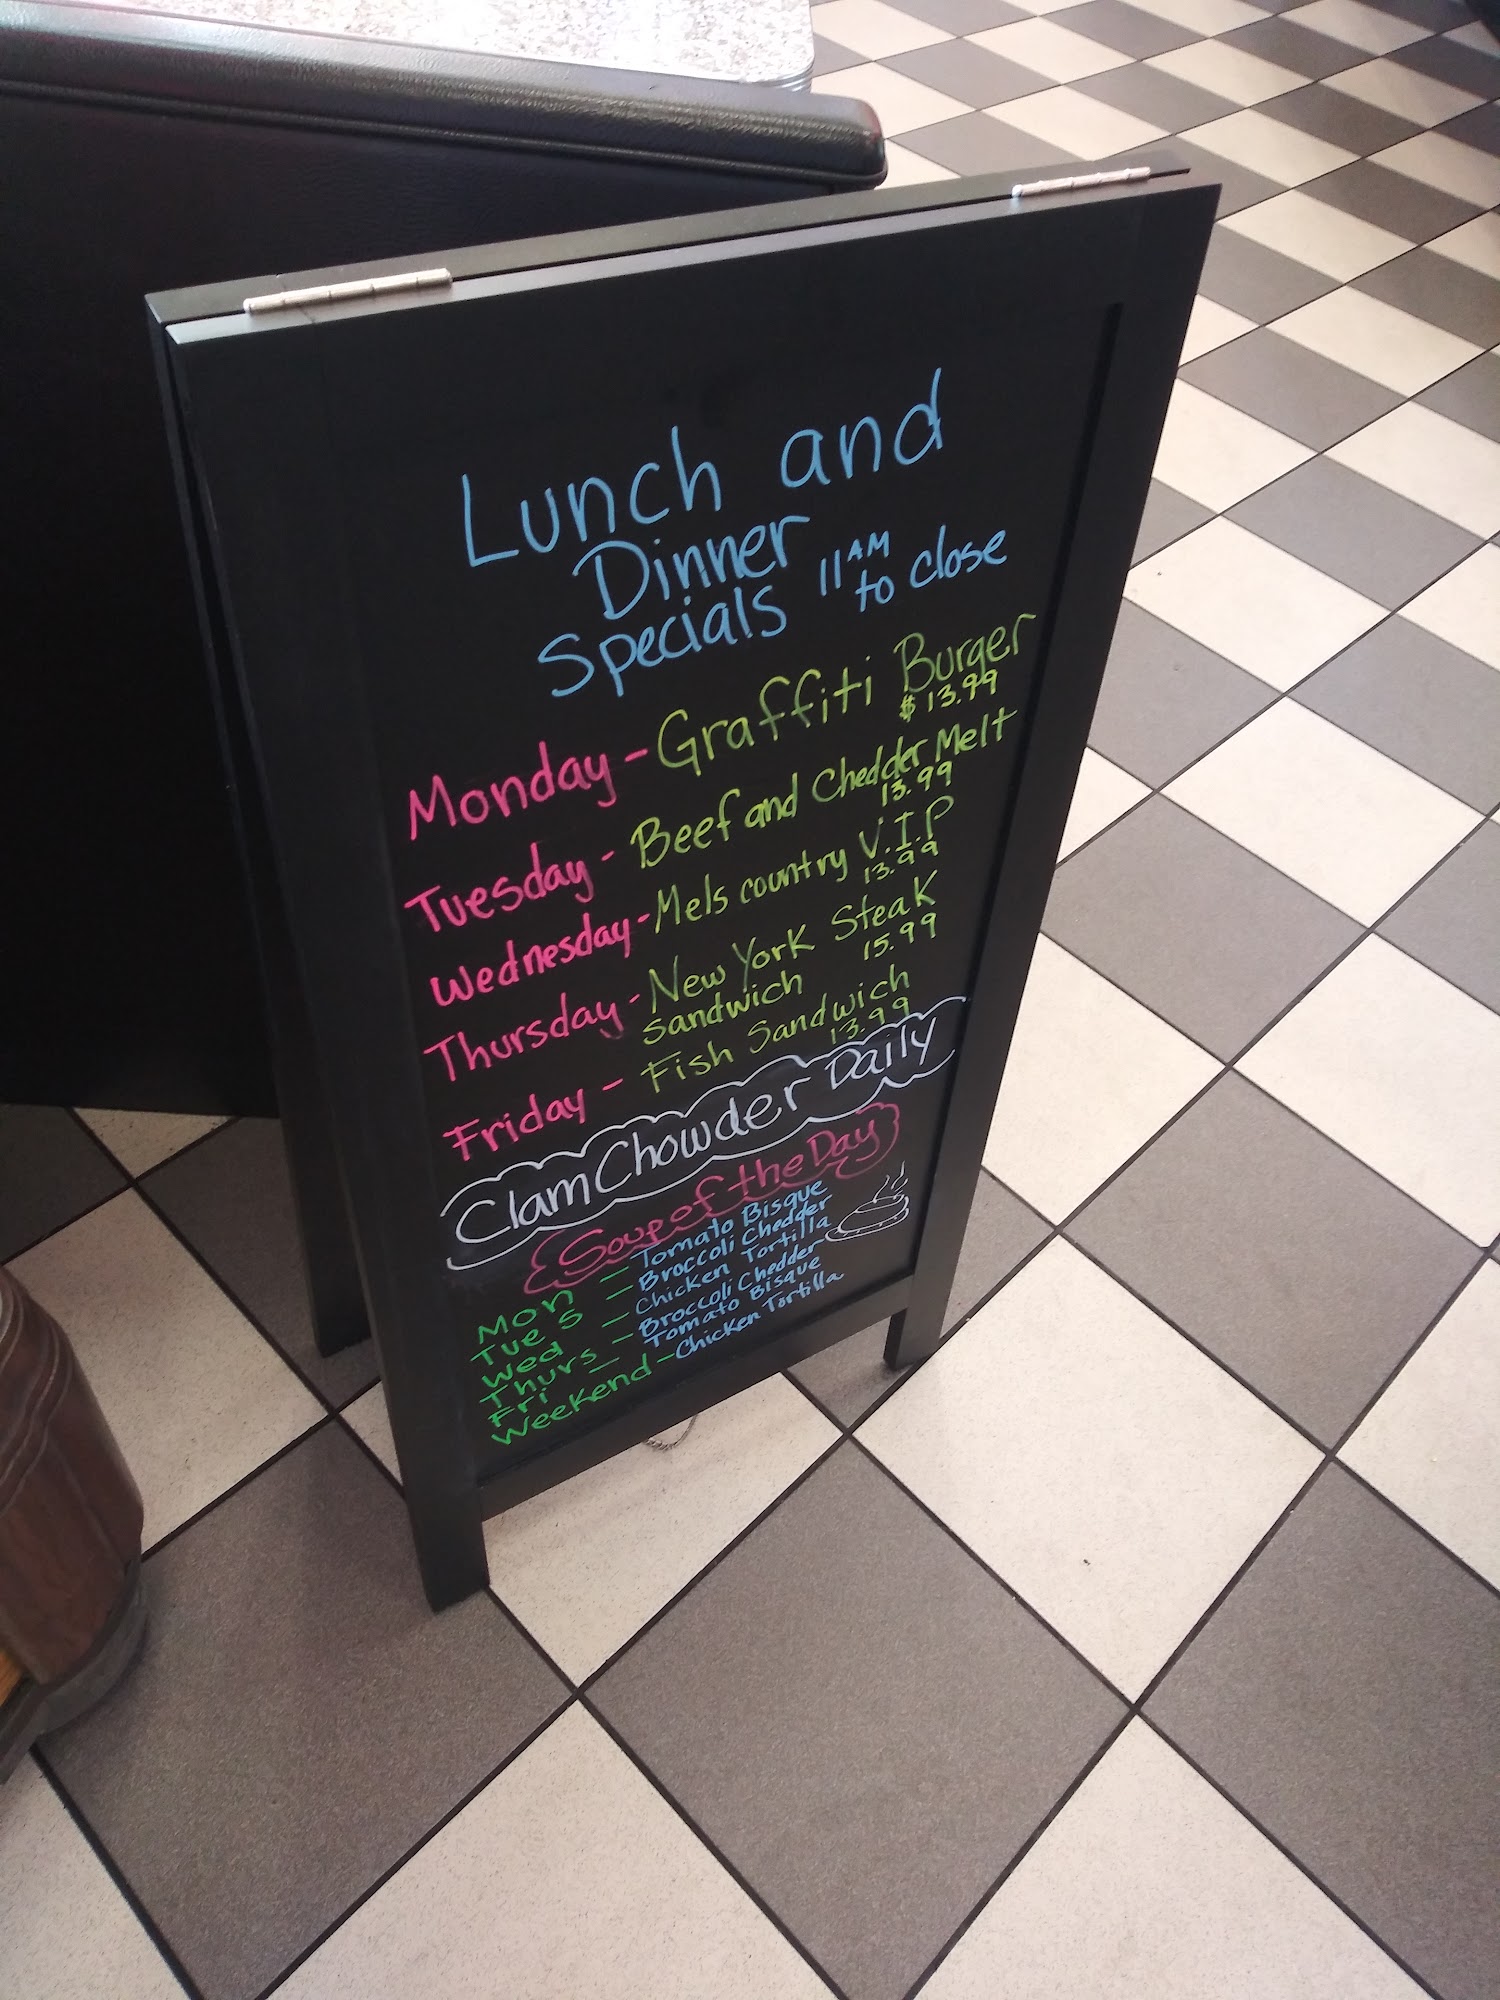 Lunch and
Dinner
Specials 11AM to close
Monday - Graffiti Burger
$13.99
Tuesday - Beef and Chedder Melt
13.99
Wednesday - Mels country V.I.P
13.99
Thursday - New York Steak
Sandwich 15.99
Friday - Fish Sandwich
13.99
Clam Chowder Daily
Soup of the Day
Mon - Tomato Bisque
Tues - Broccoli Chedder
Wed - Chicken Tortilla
Thurs - Broccoli Chedder
Fri - Tomato Bisque
Weekend - Chicken Tortilla